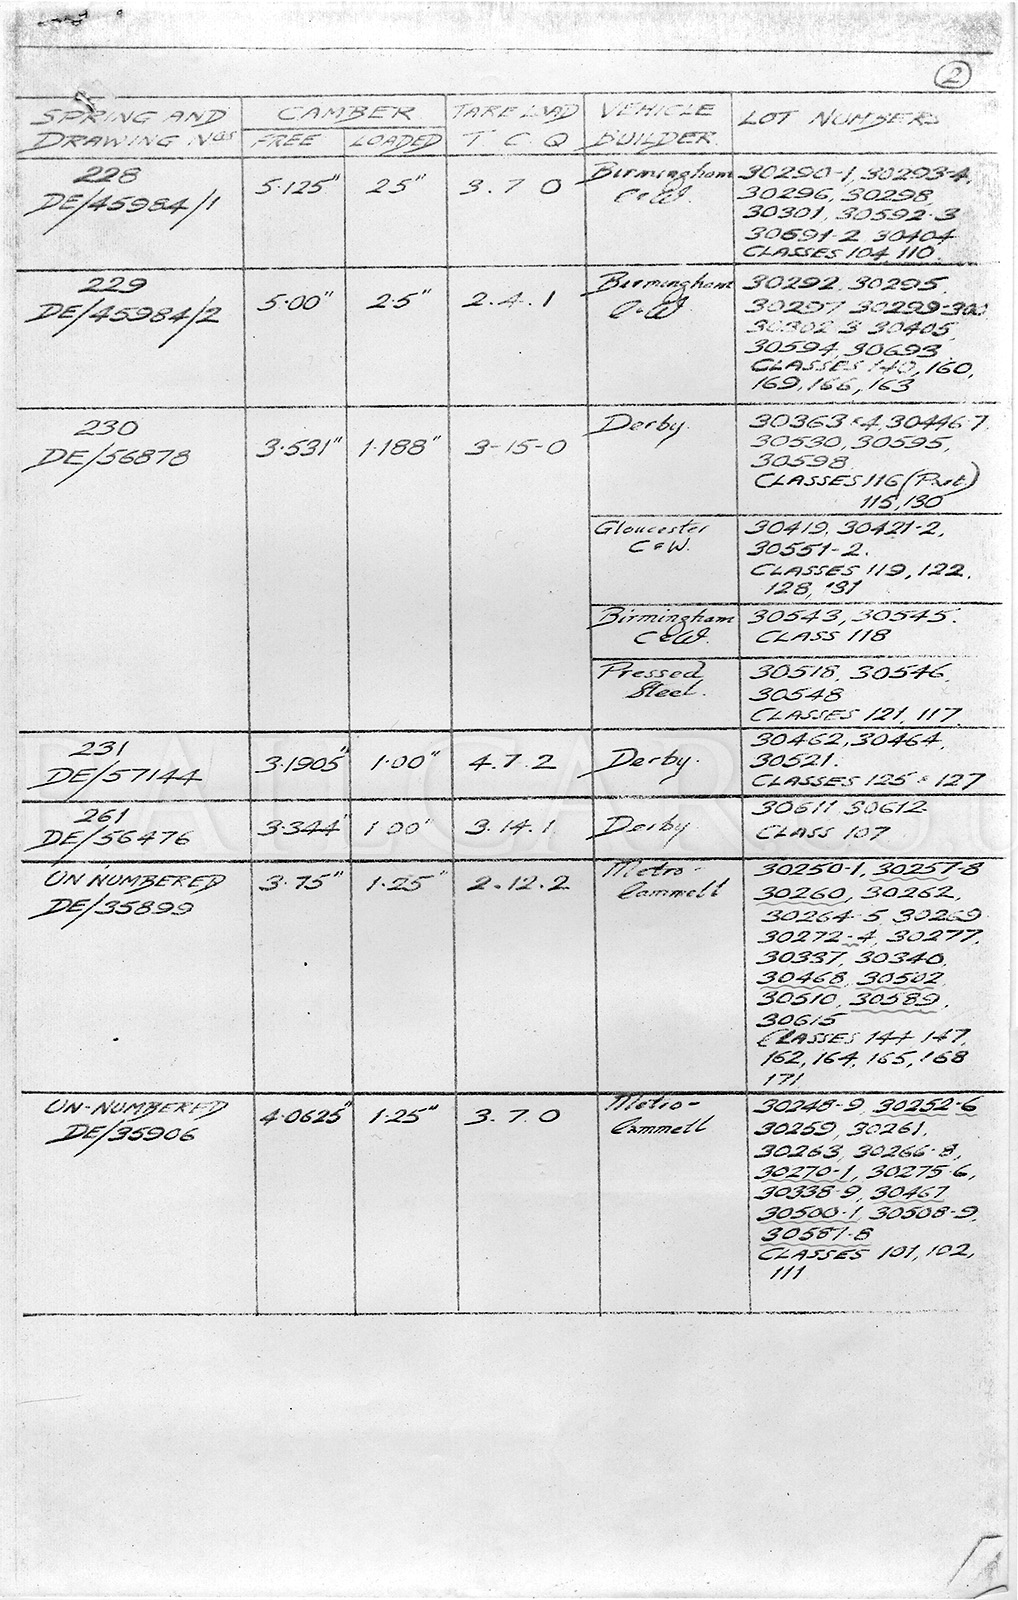 2
SPRING AND CAMBER TARE LOAD VEHICLE LOT NUMBERS
DRAWING Nos FREE LOADED T C Q BUILDER.
228 5.125" 2.5" 3.7 0 Birmingham 30290-1, 30293-4,
DE/45984/1 C&W. 30296, 30298,
30301, 30592-3
30591-2 30404
CLASSES 104, 110.
229 5.00" 2.5" 2.4.1 Birmingham 30292, 30295,
DE/45984/2 C&W. 30297 30299-300
30302-3 30405,
30594, 30693
CLASSES 140, 160,
169, 166, 163
230 3.531" 1.188" 3-15-0 Derby. 30363 & 4, 30446-7
DE/56878 30530, 30595,
30598.
CLASSES 116 (Part)
115, 130
Gloucester 30419, 30421-2,
C&W. 30551-2.
CLASSES 119, 122,
128, 131
Birmingham 30543, 30545.
C&W. CLASS 118
Pressed 30518, 30546,
Steel. 30548
CLASSES 121, 117
231 3.1905" 1.00" 4.7.2 Derby. 30462, 30464,
DE/57144 30521.
CLASSES 125 & 127
261 3.344" 1.00" 3.14.1 Derby. 30611 30612
DE/56476 CLASS 107
UN NUMBERED 3.75" 1.25" 2.12.2 Metro- 30250-1, 30257-8
DE/35899 Cammell 30260, 30262,
30264-5 30269
30272-4, 30277,
30337, 30340,
30468, 30502
30510, 30589,
30615
CLASSES 144 147,
162, 164, 165, 168
171
UN-NUMBERED 4.0625" 1.25" 3.7.0 Metro- 30248-9, 30252-6
DE/35906 Cammell 30259, 30261,
30263, 30266-8,
30270-1, 30275-6,
30338-9, 30467
30500-1, 30508-9,
30587-8
CLASSES 101, 102,
111